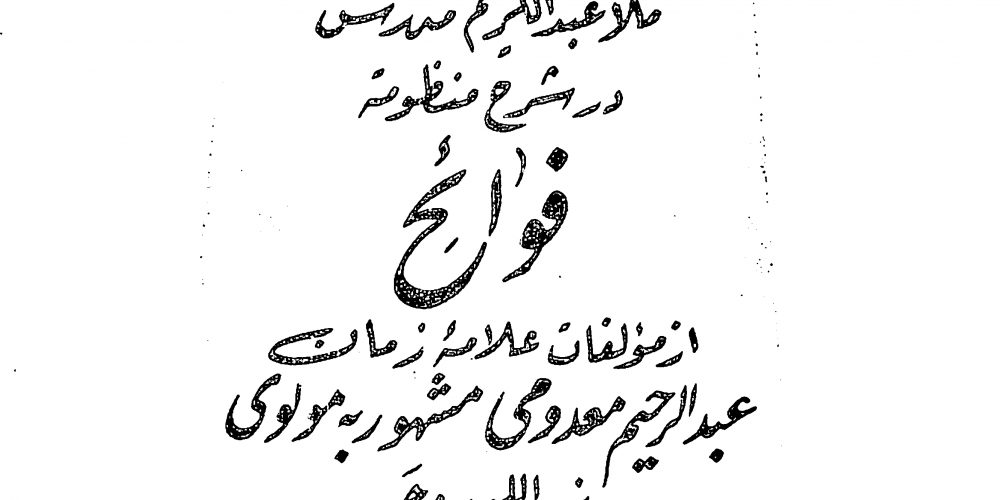 ملا عبدالکریم مدرس
در شرح منظومۀ
فَوَائِح
از مؤلفات علامۀ زمان
عبدالرحیم معدومی مشهور به مولوی